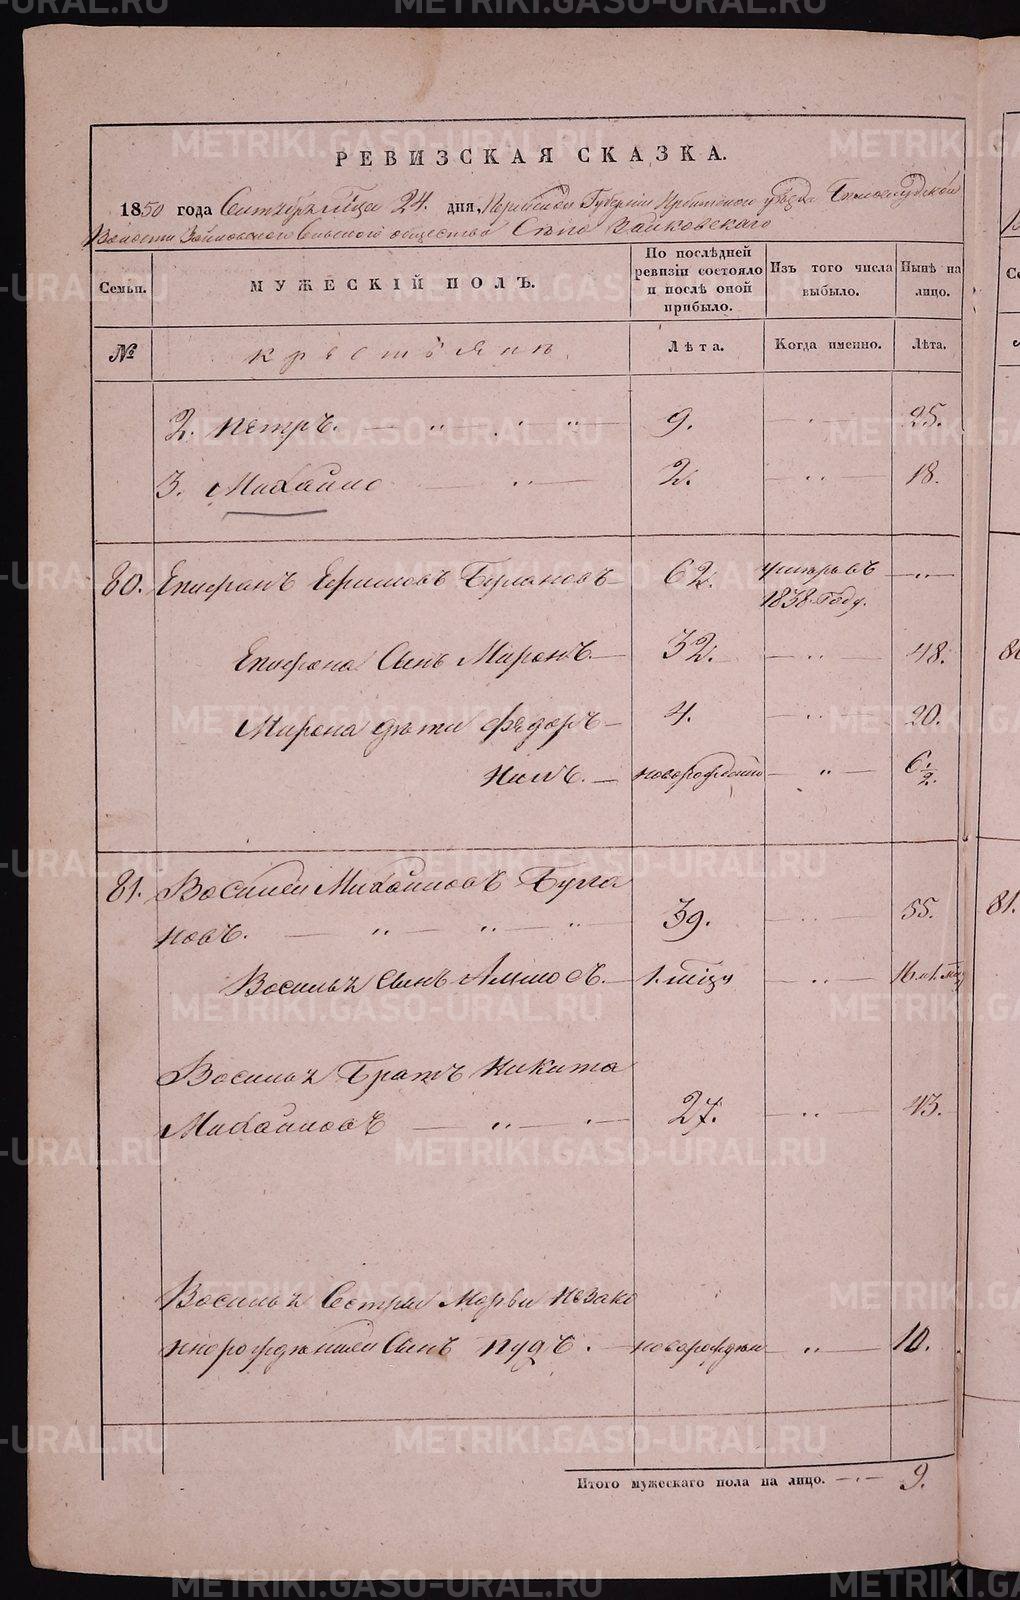 РЕВИЗСКАЯ СКАЗКА.
1850 года Сентября м̃ца 24. дня, Пермской Губерніи Ирбитскаго уѣзда Белослудской
Волости Зайковскаго Сельскаго общества Села Зайковскаго
Семьи.
МУЖЕСКІЙ ПОЛЪ.
По послѣдней ревизіи состояло и послѣ оной прибыло.
Изъ того числа выбыло.
Нынѣ на лицо.
№
крестьяне
Лѣта.
Когда именно.
Лѣта.
2. Петръ. — „ — „ — „ — 9. — „ — 25.
3. Михайло — „ — 2. — „ — 18.
80. Епифанъ Ефимовъ Булановъ 62. умеръ въ — „ —
1838 году.
Епифана Сынъ Миронъ. — 32. — „ — 48.
Мирона дѣти Федоръ — 4. — „ — 20.
Нилъ. — новорожденъ — „ — 6 1/2.
81. Василей Михайловъ Була
новъ. — „ — „ — „ 39. — „ — 55.
Василья Сынъ — 1. м̃цъ — „ — 16 л. 1. м̃ц
Василья Братъ Никита
Михайловъ — „ — „ — 27. — „ — 43.
Василья Сестры Марьи незако
ннорожденной Сынъ Пудъ. — новорожден — „ — 10.
Итого мужескаго пола на лицо. — „ — 9.
80
81.
METRIKI.GASO-URAL.RU